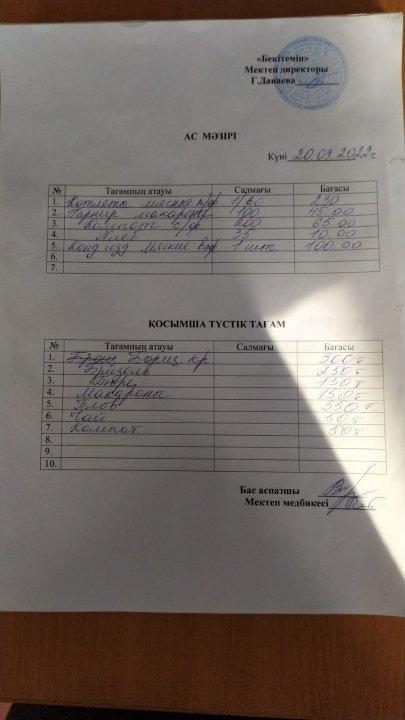 «Бекітемін»
Мектеп директоры
Г.Данаева
АС МӘЗІРІ
Күні 20.09.2022г
№ Тағамның атауы Салмағы Бағасы
1. Котлеты мясные п/ф 1/60 230
2. Гарнир макароны 100 45.00
3. Компот с/ф 200 65.00
4. Хлеб 35 10.00
5. Конд изд мягкие ваф 1 шт 100.00
6.
7.
ҚОСЫМША ТҮСТІК ТАҒАМ
№ Тағамның атауы Салмағы Бағасы
1. Борщ кр 300т
2. Бризоль 250т
3. Пюре 150т
4. Макароны 150т
5. Плов 350т
6. Чай 50т
7. Компот 50т
8.
9.
10.
Бас аспазшы
Мектеп медбикесі